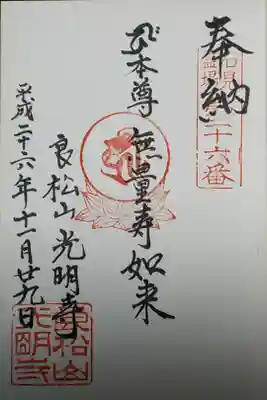 奉納
二十六番
本尊 無量寿如来
良松山 光明寺
平成二十六年十一月廿九日
良松山
光明寺